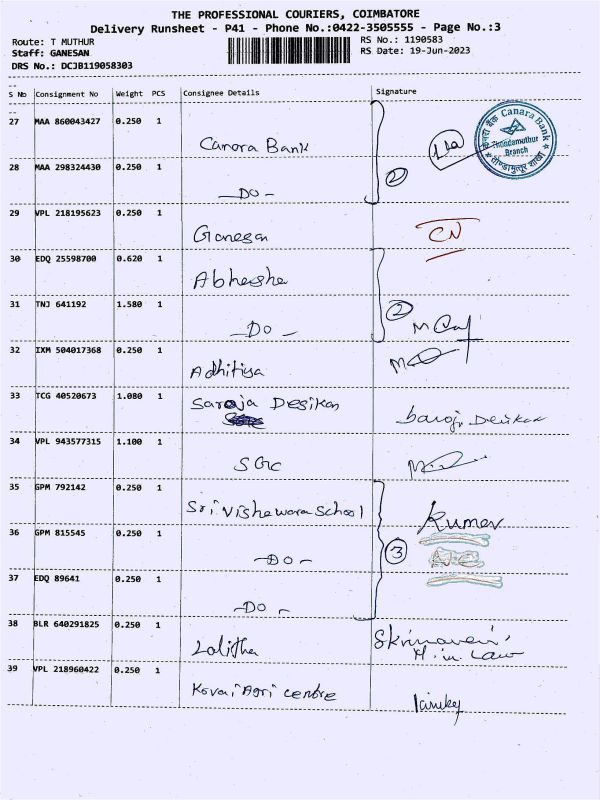 THE PROFESSIONAL COURIERS, COIMBATORE
Delivery Runsheet - P41 - Phone No.:0422-3505555 - Page No.:3
Route: T MUTHUR
RS No.: 1190583
Staff: GANESAN
RS Date: 19-Jun-2023
DRS No.: DCJB119058303
S No Consignment No Weight PCS Consignee Details Signature
27 MAA 860043427 0.250 1
Canara Bank
केनरा बैंक Canara Bank
Thondamuthur
Branch
28 MAA 298324430 0.250 1
-DO-
2
29 VPL 218195623 0.250 1
Ganesan
CN
30 EDQ 25598700 0.620 1
Abhersha
31 TNJ 641192 1.580 1
-DO-
2
32 IXM 504017368 0.250 1
Adhitiya
33 TCG 40520673 1.080 1
Saroja Desikan
Saroja Desikan
34 VPL 943577315 1.100 1
SGC
35 GPM 792142 0.250 1
Sri Vishewara School
Kumar
36 GPM 815545 0.250 1
-DO-
3
37 EDQ 89641 0.250 1
-DO-
38 BLR 640291825 0.250 1
Lalitha
M. in. Law
39 VPL 218960422 0.250 1
Kovai Agri centre